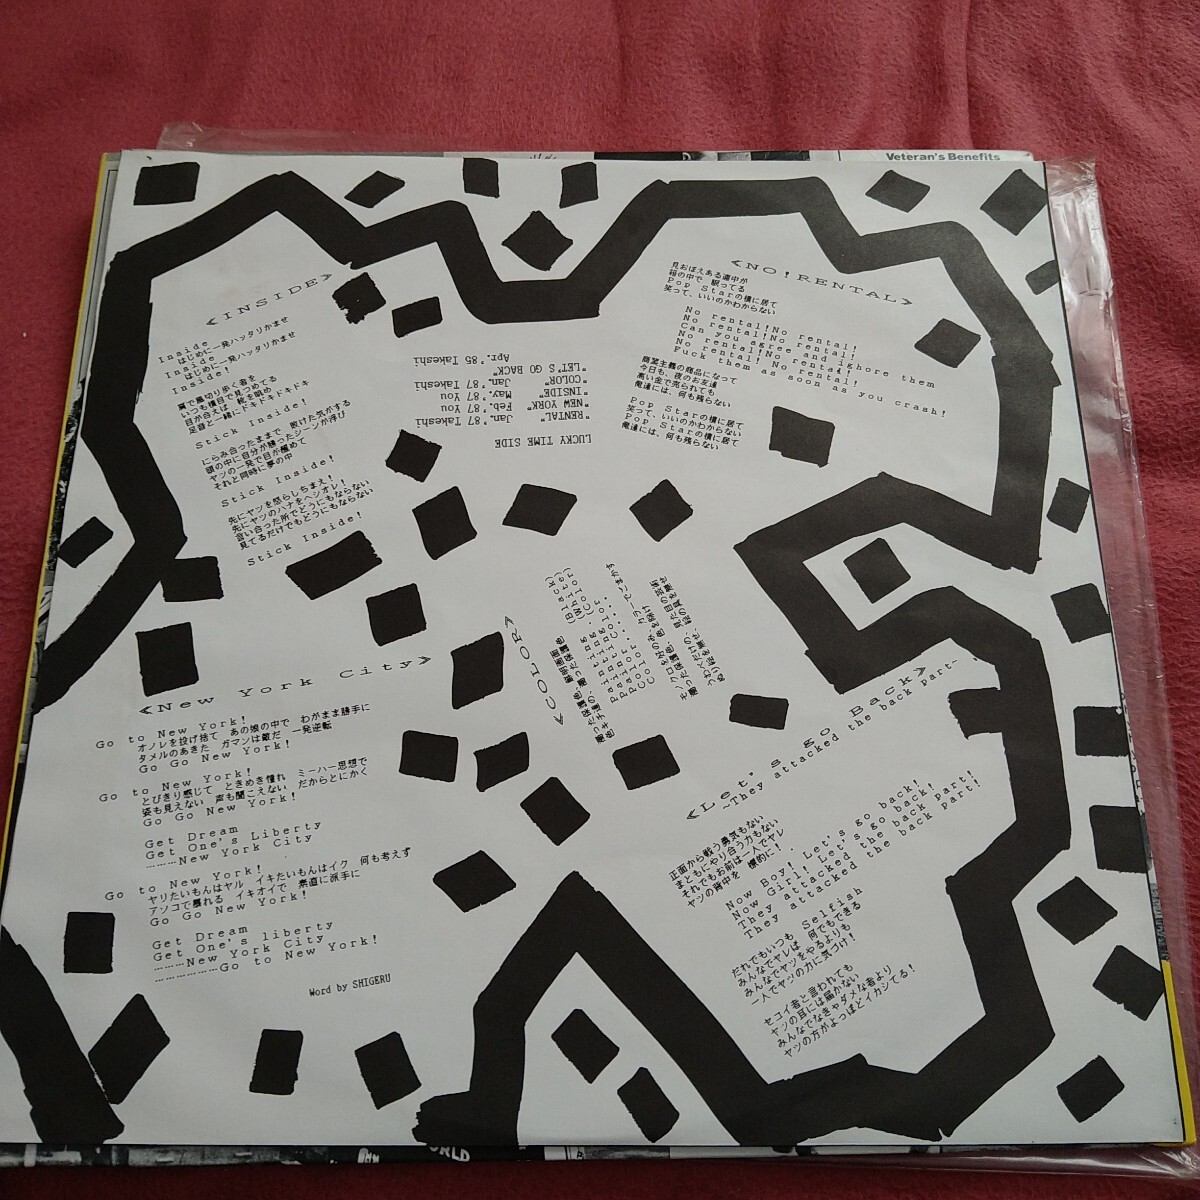 Veteran's Benefits
《INSIDE》
Inside
はじめに一発ハッタリかませ
Inside
はじめに一発ハッタリかませ
Inside!
肩で風切り歩く者を
いつも横目で見つめてる
目が合えば 靴を眺め
足音と一緒にドキドキドキ
Stick Inside!
にらみ合ったままで 散けた気がする
頭の中に自分が勝ったシーンが浮び
ヤツの一発で目が醒めて
それと同時に夢の中
Stick Inside!
先にヤツを怒らしちまえ!
先にヤツのハナをヘシオレ!
言い合った所でどうにもならない
見てるだけでもどうにもならない
Stick Inside!
《NO!RENTAL》
見おぼえある連中が
箱の中で 眠ってる
Pop Starの横に居て
笑って、いいのかわからない
No rental!No rental!
No rental!No rental!
Can you agree and ighore them
No rental!No rental!
No rental! No rental!
Fuck them as soon as you crash!
商業主義の商品になって
今日も、夜のお友達
高い金で売られても
俺達には、何も残らない
Pop Starの横に居て
笑って、いいのかわからない
Pop Starの横に居て
俺達には、何も残らない
LUCKY TIME SIDE
"RENTAL" Jan.'87 Takeshi
"NEW YORK" Feb.'87 You
"INSIDE" May.'87 You
"COLOR" Jan.'87 Takeshi
"LET'S GO BACK"
Apr.'85 Takeshi
《New York City》
Go to New York!
オノレを投げ捨て あの娘の中で わがまま勝手に
タメルのあきた ガマンは敵だ 一発逆転
Go Go New York!
Go to New York!
とびきり感じて ときめき憧れ ミーハー思想で
姿も見えない 声も聞こえない だからとにかく
Go Go New York!
Get Dream
Get One's Liberty
………New York City
Go to New York!
ヤリたいもんはヤル イキたいもんはイク 何も考えず
アソコで暴れる イキオイで 素直に派手に
Go Go New York!
Get Dream
Get One's liberty
………New York City
………………Go to New York!
Word by SHIGERU
《COLOR》
painting (Black)
painting (White)
painting (Color)
Color...
《Let's go Back》
~They attacked the back part~
正面から戦う勇気もない
まともにやり合う力もない
それでもお前は一人でヤレ
ヤツの背中を 標的に!
Now Boy! Let's go back!
Now Girl! Let's go back!
They attacked the back part!
They attacked the back part!
Selfish
だれでもいつも 何でもできる
みんなでヤレば 何でもできる
みんなでヤツをやるよりも
一人でヤツの力に気づけ!
セコイ者と言われても
ヤツの耳には届かない
みんなでなきゃダメな者より
ヤツの方がよっぽどイカシてる!